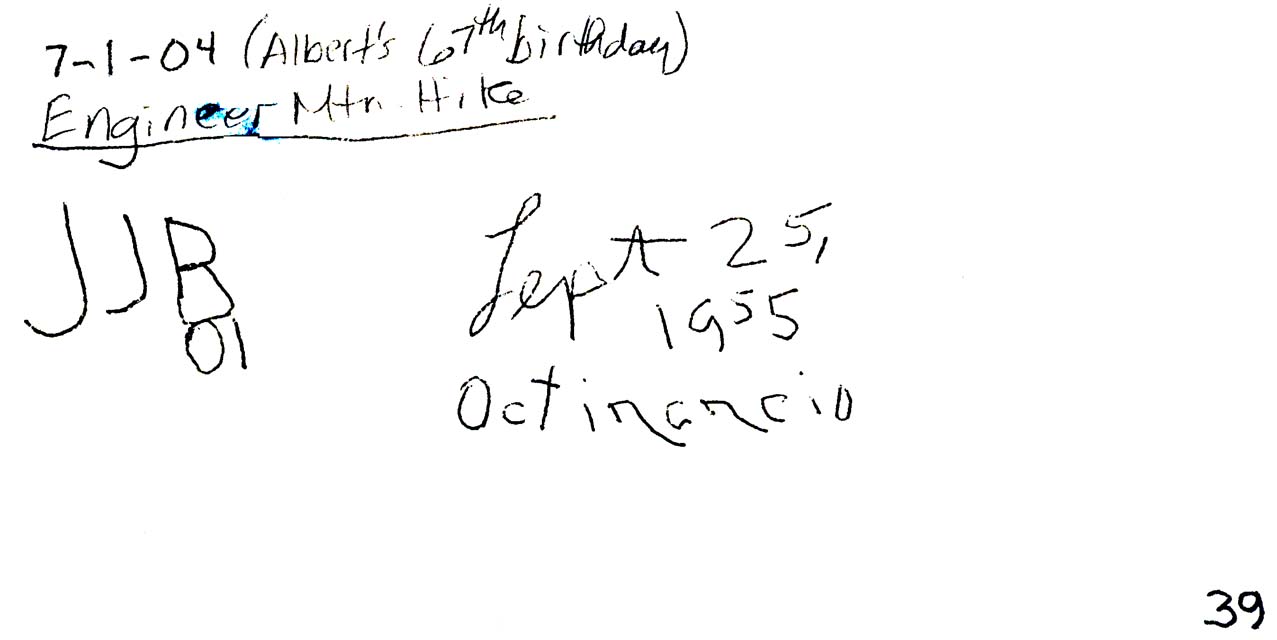 7-1-04 (Albert's 67th birthday)
Engineer Mtn. Hike
JJB
01
Sept 25,
1955
Octinancio
39